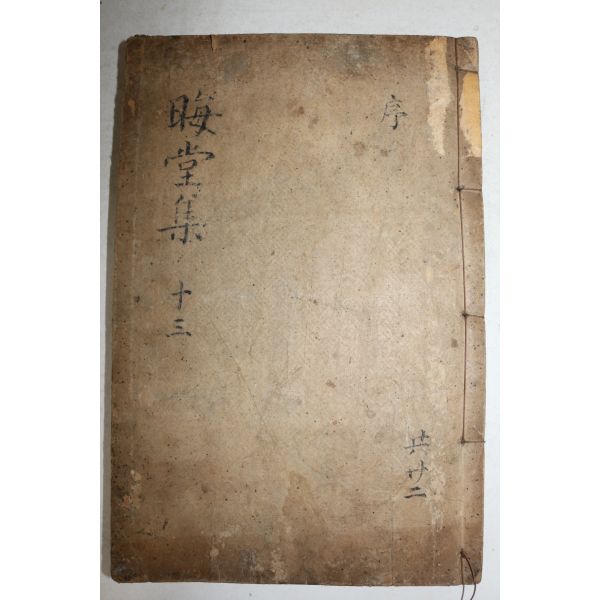 晦堂集 十三
序
共廿二